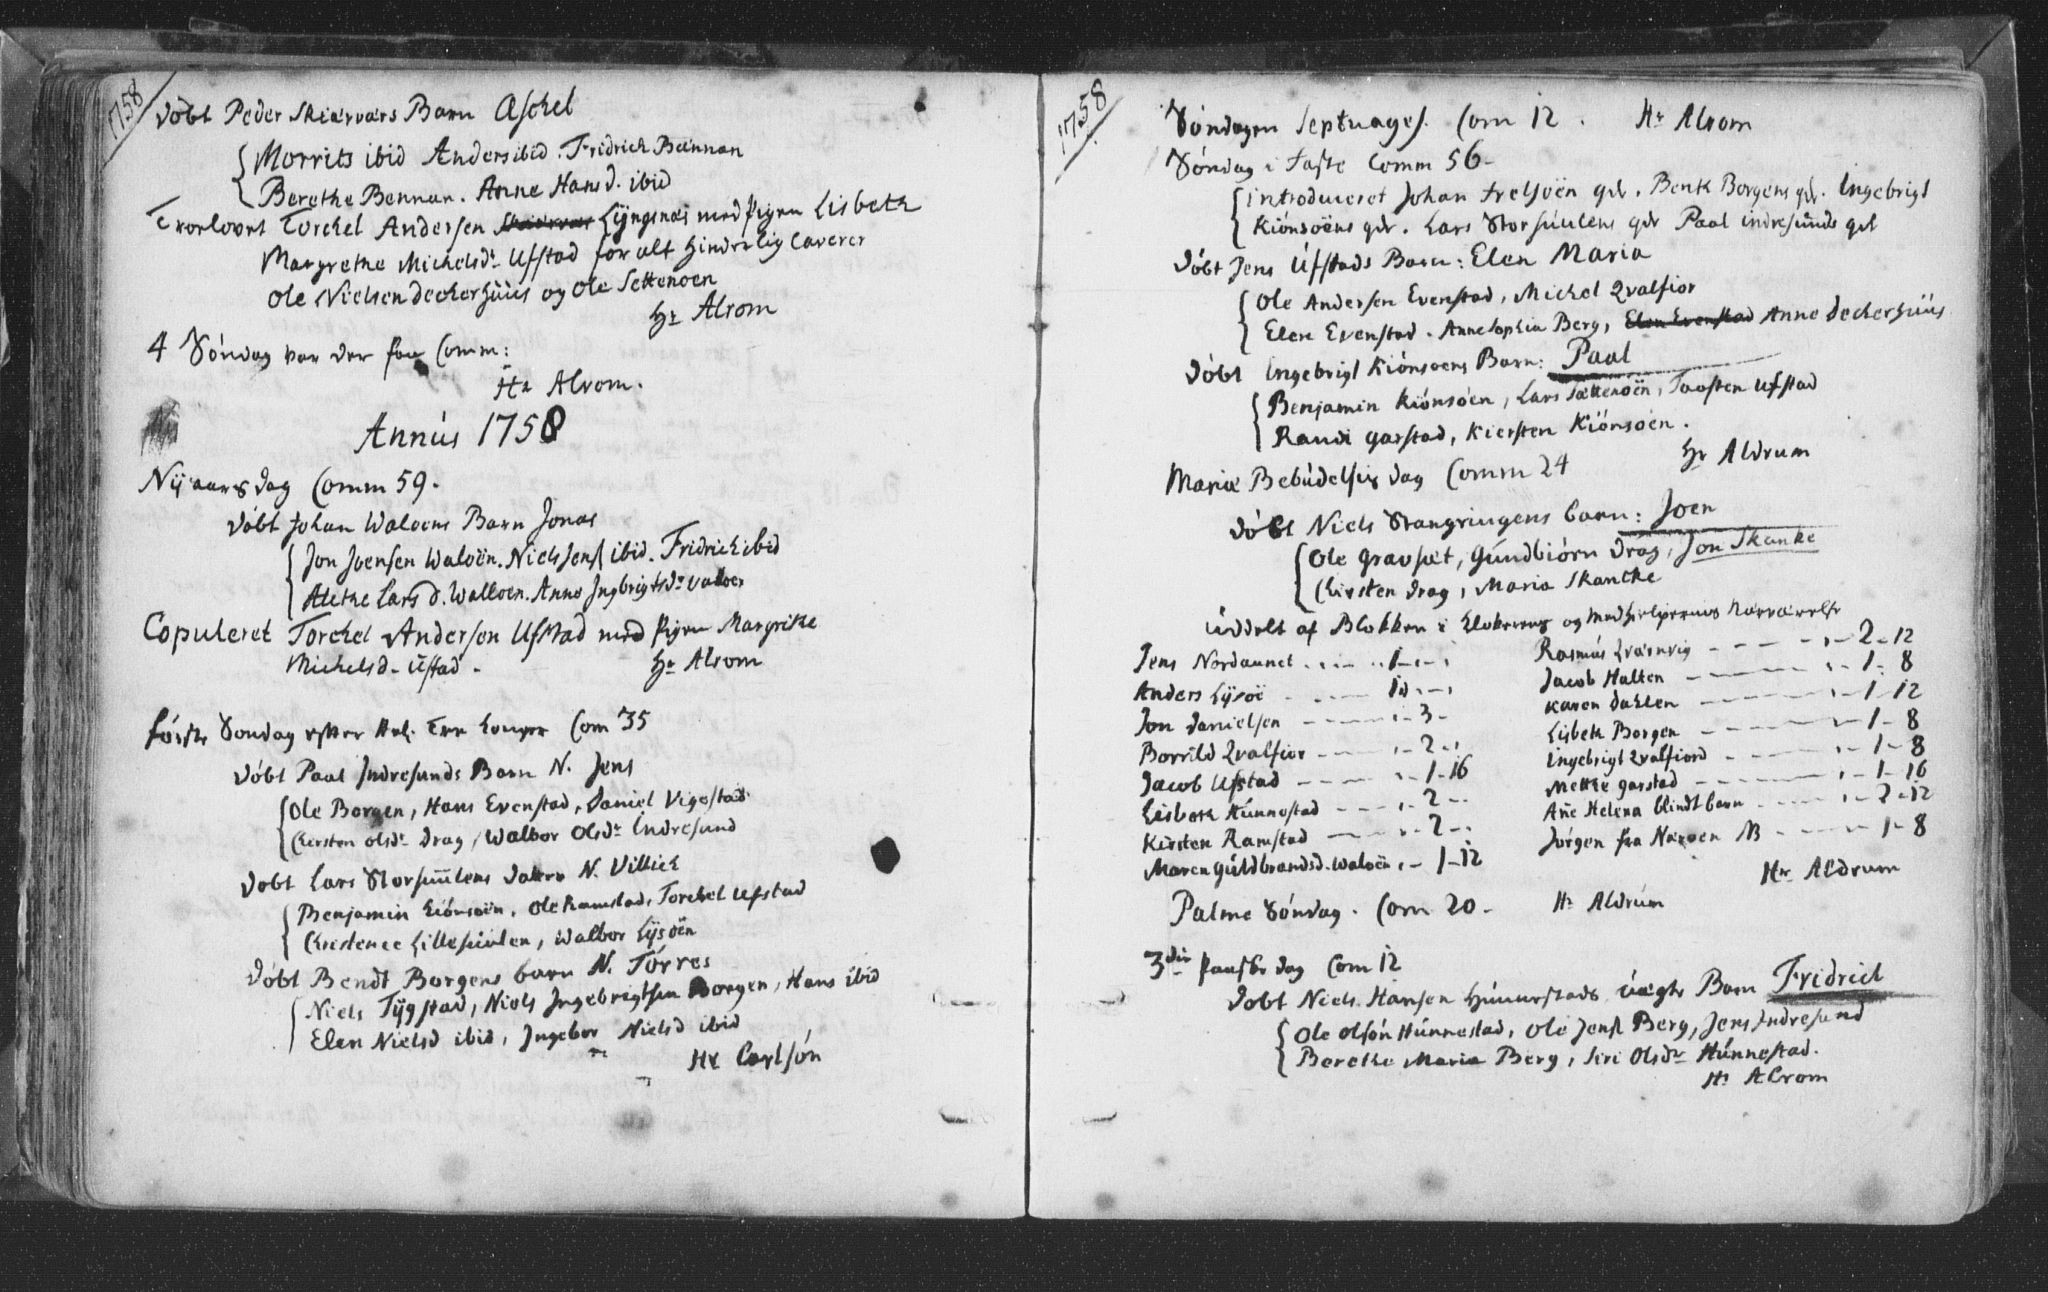 1758
Døbt Peder Skiærværs Barn Aschel
Morrits ibid Anders ibid. Fridrich Bennan
Berethe Bennan. Anne Hansd. ibid
Troelovet Torchel Andersen Lÿngsnæs med Pigen Lisbeth
Margrethe Michelsdr Ufstad for alt hinderlig Caverer
Ole Nielsen Deckerhuus og Ole Settenøen
Hr Alrom
4 Søndag var der faa Comm:
Hr Alrom.
Annús 1758
Nÿ aars dag Comm 59.
Døbt Johan Waloens Barn Jonas
Jon Joensen Waloën. Niels Jens. ibid. Fridrich ibid
Alethe Lars D. Walloen. Anne Ingbrigtsdr valoen
Copuleret Torchel Andersen Ufstad med Pigen Margrethe
Michelsd. Ufstad. Hr Alrom
første Søndag efter Hel. Tre Konger Com 35
Døbt Paal Indresunds Barn N. Jens
Ole Borgen, Hans Evenstad, Daniel Vigestad
Chersten Olsdr Drag, Walbor Olsdr Indresund
Døbt Lars Storsuulens Datter N. Villich
Benjamin Kiónsoën, Ole Ramstad, Torchel Ufstad
Christence Lillesuulen, Walbor Lÿsöën
Døbt Bendt Borgens barn N. Tórres
Niels Tÿgstad, Niels Ingebrigtsen Borgen, Hans ibid
Elen Nielsd ibid, Ingebor Nielsd ibid
Hr Carlsón
1758
Søndagen Septuages. Com 12. Hr Alrom
Søndag i Faste Comm 56.
introduceret Johan Frelsoën qdr. Benk Borgens qdr. Ingebrigt
Kiónsoëns qdr. Lars Storsúulens qdr Paal indresunds qdr
Døbt Jens Úfstads Barn: Elen Maria
Ole Andersen Evenstad, Michel Qvalfior
Elen Evenstad. Anne Sophia Berg, Elen Evenstad Anne Deckerhuus
Døbt Ingebrigt Kiónsoens Barn: Paal
Benjamin Kiónsóen, Lars Sættenoën, Taasten Ufstad
Randi Garstad, Kiersten Kiónsóen.
Hr Aldrum
Mariæ Bebúdelsis dag Comm 24
Døbt Niels Stangringens barn: Joen
Ole Gravsæt, Gúndbiórn Drag, Jon Skanke
Chirsten Drag, Maria Skancke
úddelt af Blokken i Klokerens og Medhielpernis Nærværelse
Jens Nordaunet 1
Anders Lÿsoë
Jon Danielsen 3
Borrild Qvalfior 2
Jacob Ufstad 1-16
Lisbeth Húnnestad 2
Kirsten Ramstad 2
Maren Gúldbrandsd. Waloën 1-12
Rasmús Qværnvig 2-12
Jacob Halten 1-8
Karen Dahlen 1-12
Lisbeth Borgen 1-8
Ingebrigt Qvalfiord 1-8
Mette Garstad 1-16
Añe Helena blindt barn 2-12
Jórgen fra Nærøen NB 1-8
Hr Aldrum
Palme Søndag. Com 20. Hr Aldrúm
3die Paaske dag Com 12
Døbt Niels Hansen Húnnestads úægte Barn Fridrich
Ole Olsón Húnnestad, Ole Jens. Berg, Jens Indresund
Berethe Maria Berg, Siri Olsdr Húnnestad.
Hr Alrom